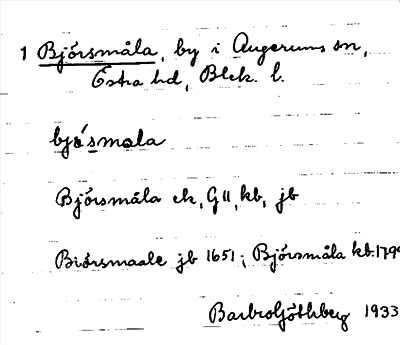 1 Bjórsmåla, by i Augerums sn,
Östra hd, Blek. l.
bjǿsmåla
Bjórsmåla ek, GII, kb, jb
Biórsmaale jb 1651; Bjórsmåla kb. 1799
Barbro Göthberg 1933